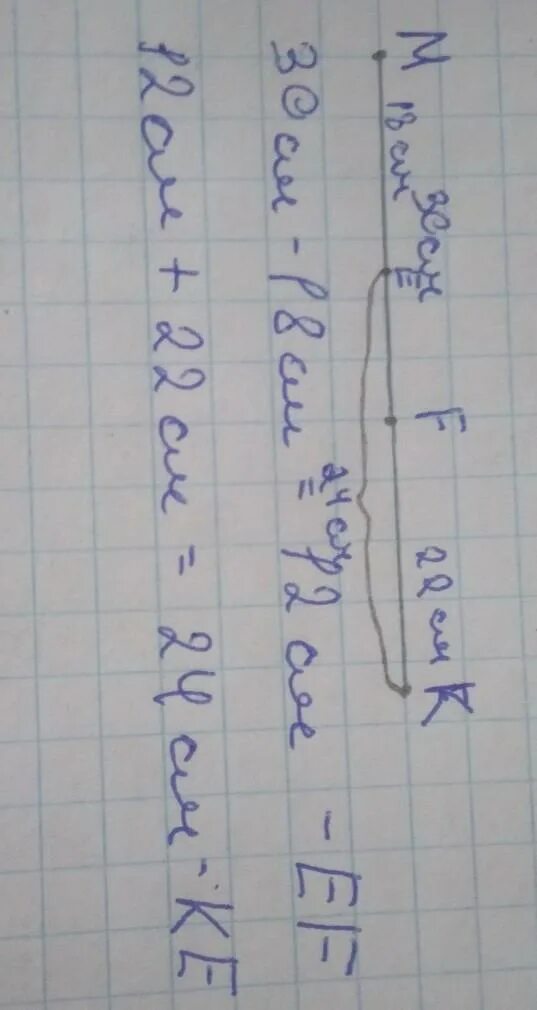 M 18 см 30 см E F 22 см K
24 см
30 см - 18 см = 12 см - EF
12 см + 22 см = 24 см - KE